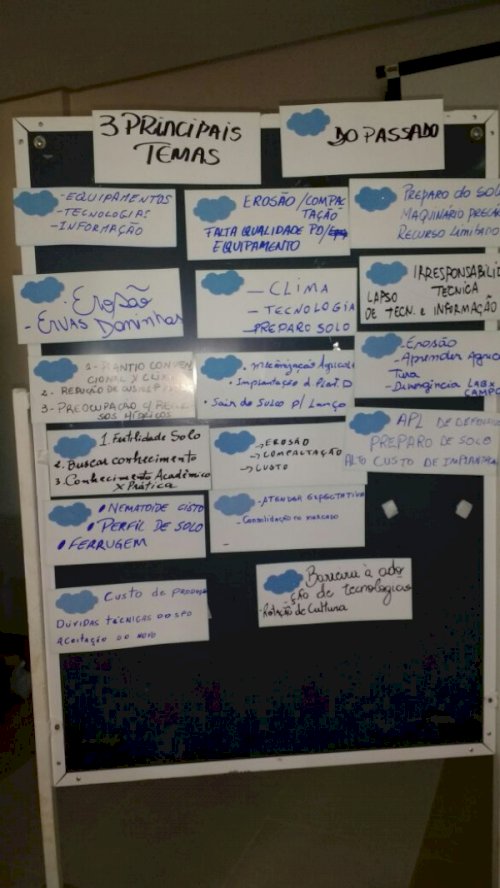 3 PRINCIPAIS
TEMAS
DO PASSADO
- EQUIPAMENTOS
- TECNOLOGIAS
- INFORMAÇÃO
EROSÃO / COMPAC
TAÇÃO
FALTA QUALIDADE PD/
EQUIPAMENTO
PREPARO DO SOLO
MAQUINÁRIO
RECURSO LIMITADO
- Erosão
- Ervas Daninhas
- CLIMA
- TECNOLOGIA
- PREPARO SOLO
IRRESPONSABILID
TECNICA
LAPSO
DE TECN. E INFORMAÇÃO
1- PLANTIO CONVEN
CIONAL X
2- REDUÇÃO DE
3- PREOCUPAÇÃO
SOS HÍDRICOS
• Mecanização Agrícola
• Implantação d Plat D
• Sair do Sulco p/ Lanço
- Erosão
- Aprender Agricul
Tura
- Divergência LAB x
CAMPO
1. Fertilidade Solo
2. Buscar conhecimento
3. Conhecimento Acadêmico
X Prática
→ EROSÃO
→ COMPACTAÇÃO
→ CUSTO
APL DE DEFENSIV
PREPARO DE SOLO
ALTO CUSTO DE IMPLANTA
• NEMATOIDE CISTO
• PERFIL DE SOLO
• FERRUGEM
- ATENDER EXPECTATIVA
- Consolidação no mercado
-
CUSTO DE PRODUÇÃO
DUVIDAS TÉCNICAS DO SPD
ACEITAÇÃO DO NOVO
Barreira à ado
ção de tecnologias
- Rotação de Cultura